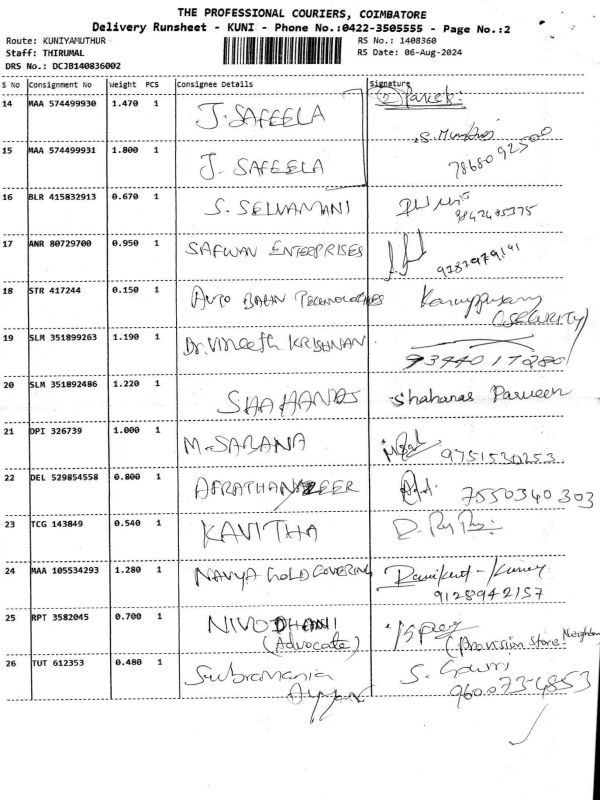 THE PROFESSIONAL COURIERS, COIMBATORE
Delivery Runsheet - KUNI - Phone No.:0422-3505555 - Page No.:2
Route: KUNIYAMUTHUR RS No.: 1408360
Staff: THIRUMAL RS Date: 06-Aug-2024
DRS No.: DCJB140836002
S No Consignment No Weight PCS Consignee Details Signature
14 MAA 574499930 1.470 1 J. SAFEELA ② Parcels:
15 MAA 574499931 1.800 1 J. SAFEELA 7868092500
16 BLR 415832913 0.670 1 S. SELVAMANI 9842405375
17 ANR 80729700 0.950 1 SAFWAN ENTERPRISES
18 STR 417244 0.150 1 AUTO BAHN TECHNOLOGIES Karuppusamy
(SECURITY)
19 SLM 351899263 1.190 1 Dr. Vineeth KRISHNAN 9344017280
20 SLM 351892486 1.220 1 SHAHANAS Shahanas Parveen
21 DPI 326739 1.000 1 M. SABANA 9751530253
22 DEL 529854558 0.800 1 AFRATHANAZEER 7550340303
23 TCG 143849 0.540 1 KAVITHA
24 MAA 105534293 1.280 1 NAVYA GOLD COVERING
9128942157
25 RPT 3582045 0.700 1 NIVODHANI
(Advocate) (Provision Store Neighbour
26 TUT 612353 0.480 1 Subramania S. Gowri
960073-4853